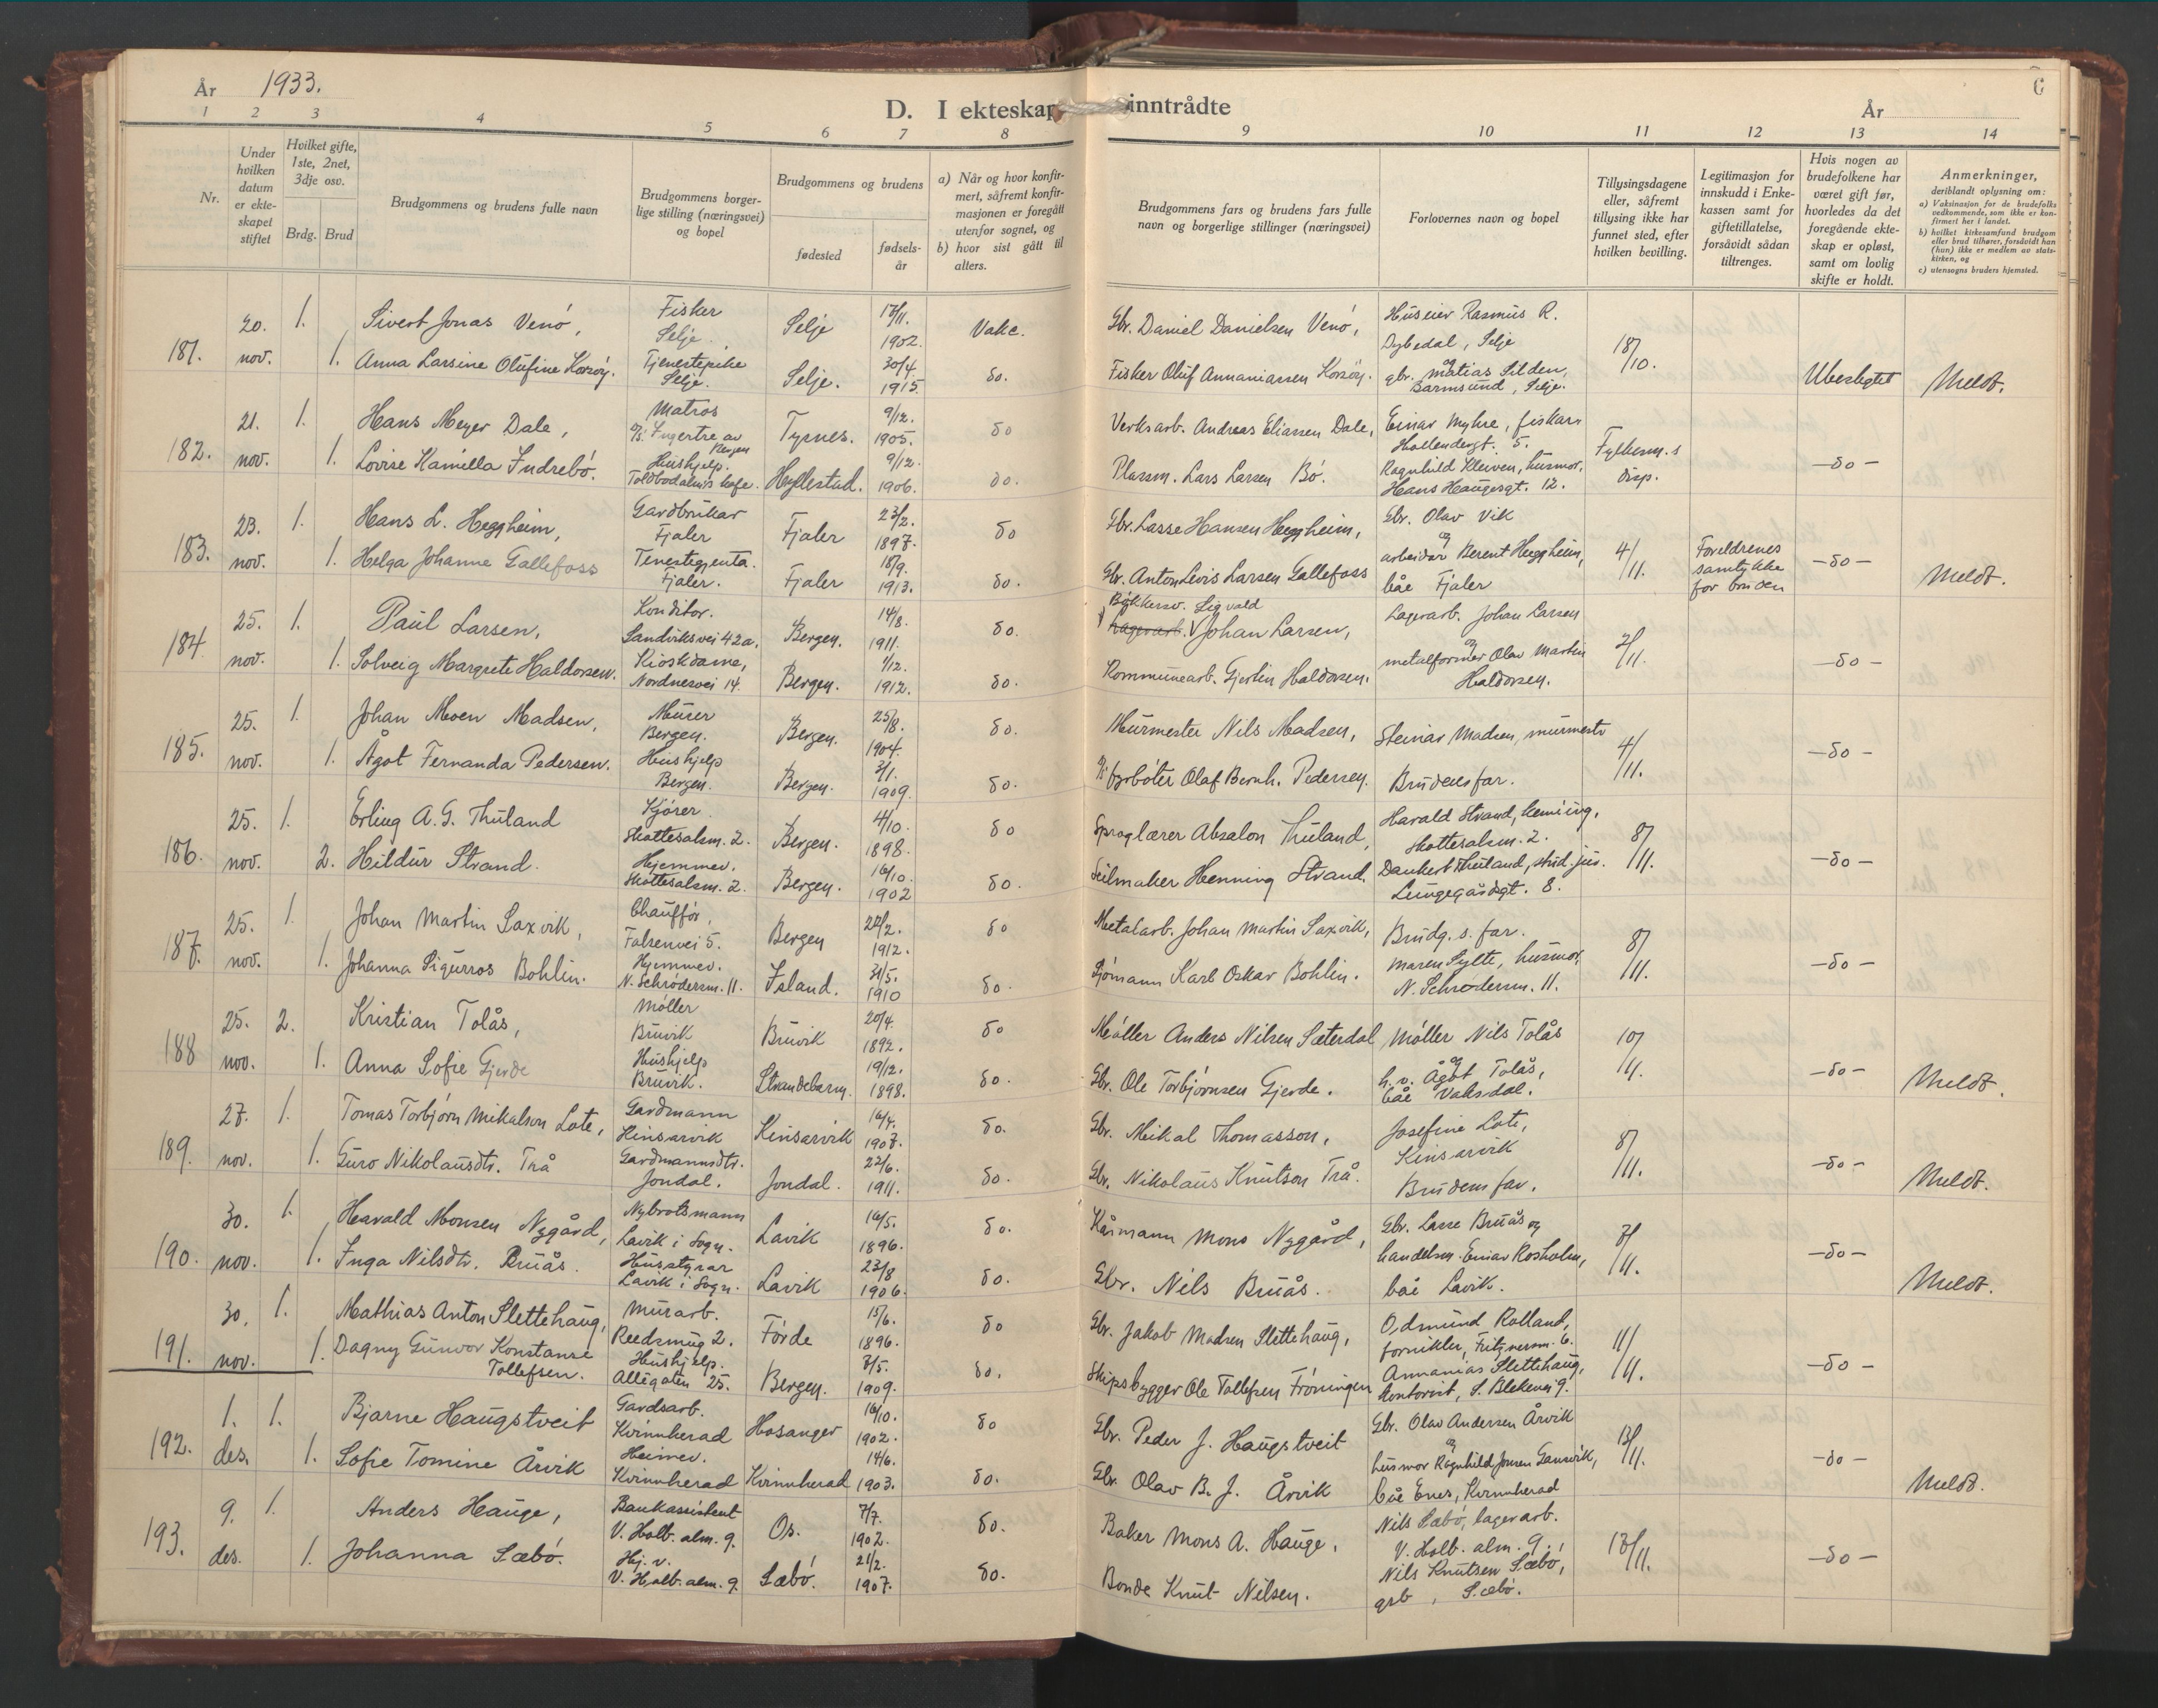 År 1933.
D. I ekteskap inntrådte
År
6
1 2 3 4 5 6 7 8 9 10 11 12 13 14
Nr.
Under hvilken datum er ekteskapet stiftet
Hvilket gifte, 1ste, 2net, 3dje osv.
Brdg. Brud
Brudgommens og brudens fulle navn
Brudgommens borgerlige stilling (næringsvei) og bopel
Brudgommens og brudens
fødested
fødselsår
a) Når og hvor konfirmert, såfremt konfirmasjonen er foregått utenfor sognet, og
b) hvor sist gått til alters.
Brudgommens fars og brudens fars fulle navn og borgerlige stillinger (næringsvei)
Forlovernes navn og bopel
Tillysingsdagene eller, såfremt tillysing ikke har funnet sted, efter hvilken bevilling.
Legitimasjon for innskudd i Enkekassen samt for giftetillatelse, forsåvidt sådan tiltrenges.
Hvis nogen av brudefolkene har været gift før, hvorledes da det foregående ekteskap er opløst, samt om lovlig skifte er holdt.
Anmerkninger,
deriblandt oplysning om:
a) Vaksinasjon for de brudefolks vedkommende, som ikke er konfirmert her i landet.
b) hvilket kirkesamfund brudgom eller brud tilhører, forsåvidt han (hun) ikke er medlem av statskirken, og
c) utensogns bruders hjemsted.
181. 20. nov. 1. Sivert Jonas Venö, Fisker Selje. Selje 17/11. 1902. Vake. Gbr. Daniel Danielsen Venö, Huseier Rasmus R. Dybedal, Selje 18/10.
1. Anna Larsine Olufine Korsöy. Tjenestepike Selje. Selje. 30/4. 1915. do. Fisker Oluf Annaniassen Korsöy. og gbr. Matias Silden, Barmsund, Selje. Ubeslegtet Meldt.
182. 21. nov. 1. Hans Meyer Dale, Matros Bergen Tysnes. 9/12. 1905. do Verksarb. Andreas Eliassen Dale, Einar Myhre, fiskar Hollendergt. 5. Fylkesm.s disp.
1. Lovise Kamilla Indrebö. Hushjelp. Hyllestad. 9/12. 1906. do. Plassm. Lars Larsen Bö. Ragnhild Kleiven, husmor, Hans Haugesgt. 12. —do—
183. 23. nov. 1. Hans L. Heggheim, Gardbrukar Fjaler Fjaler 23/2. 1897. do Gbr. Lasse Hansen Heggheim, Gbr. Olav Vik 4/11. Foreldrenes samtykke for bruden
1. Helga Johanne Gallefoss Tenestegjenta. Fjaler. Fjaler 18/9. 1913. do. Gbr. Anton Levis Larsen Gallefoss og arbeidar Berent Heggheim, båe Fjaler —do— Meldt.
184. 25. nov. 1. Paul Larsen, Konditor. Sandviksvei 42a. Bergen. 14/8. 1911. do. Bökkersv. Sigvald Lagerarb. Johan Larsen, Lagerarb. Johan Larsen 2/11.
1. Solveig Margrete Haldorsen. Kioskdame, Nordnesvei 14. Bergen. 1/12. 1912. do. Kommunearb. Gjertin Haldorsen. og metalformer Olav Martin Haldorsen. —do—
185. 25. nov. 1. Johan Moen Madsen, Murer Bergen. Bergen. 25/8. 1904. do. Murmester Nils Madsen, Steinar Madsen, murmestr 4/11.
1. Ågot Fernanda Pedersen. Hushjelp Bergen. Bergen. 3/1. 1909. do. Fyrböter Olaf Bernh. Pedersen. Brudens far. —do—
186. 25. nov. 1. Erling A. G. Thuland Kjörer. Skottesalm. 2. Bergen. 4/10. 1898. do Sproglærer Absalon Thuland, Harald Strand, kemiing. Skottesalm. 2. 8/11.
2. Hildur Strand. Hjemmev. Skottesalm. 2. Bergen. 16/10. 1902 do. Seilmaker Henning Strand. Dankert Thuland, stud. jur. Lungegårdsgt. 8. —do—
187. 25. nov. 1. Johan Martin Saxvik, Chauffør, Falsenvei 5. Bergen 22/2. 1912. do Metalarb. Johan Martin Saxvik, Brudg.s. far. 8/11.
1. Johanna Sigurros Bohlin. Hjemmev. N. Schrödersm. 11. Island. 31/5. 1910 do. Sjömann Karl Oskar Bohlin. Maren Sylte, husmor, N. Schrodersm. 11. —do—
188 25. nov. 2. Kristian Tolås, Möller Bruvik Bruvik 20/4. 1892. do Möller Anders Nilsen Sæterdal, Möller Nils Tolås 10/11.
1. Anna Sofie Gjerde Hushjelp Bruvik. Strandebarm. 19/12. 1898. do. Gbr. Ole Torbjörnsen Gjerde. og h.v. Ågot Tolås, båe Vaksdal. —do— Meldt.
189. 27. nov. 1. Tomas Torbjørn Mikalson Lote, Gardmann Kinsarvik Kinsarvik 16/4. 1907. do. Gbr. Mikal Thomasson, Josefine Lote, Kinsarvik 8/11.
1. Guro Nikolausdtr. Trå Gardmannsdtr. Jondal. Jondal. 22/6. 1911. do. Gbr. Nikolaus Knutson Trå. Brudens far. —do— Meldt.
190. 30. nov. 1. Harald Monsen Nygård, Nybrotsmann Lavik i Sogn. Lavik 16/5. 1896. do. Kårmann Mons Nygård, Gbr. Lasse Bruås og 7/11.
1. Inga Nilsdtr. Bruås. Husstyrar Lavik i Sogn. Lavik 23/8 1906. do. Gbr. Nils Bruås. handelsm. Einar Rosholm, båe Lavik. —do— Meldt.
191. 30. nov. 1. Mathias Anton Slettehaug, Murarb. Reedsmug 2. Förde 15/6. 1896. do Gbr. Jakob Madsen Slettehaug, Odmund Rolland, fornikler, Fritznersm. 6. 11/11.
1. Dagny Gunvor Konstanse Tollefsen. Hushjelp. Allégaten 25. Bergen. 7/5. 1909. do. Skipsbygger Ole Tollefsen Fröningen Annanias Slettehaug, kontorist, S. Blekevei 9. —do—
192. 1. des. 1. Bjarne Haugstveit Gardsarb. Kvinnherad Hosanger 16/10. 1902. do Gbr. Peder J. Haugstveit Gbr. Olav Andersen Årvik 13/11.
1. Sofie Tomine Årvik Heimev. Kvinnherad Kvinnherad 14/6. 1903. do. Gbr Olav B. J. Årvik og husmor Ragnhild Jonsen Gausvik, båe Enes, Kvinnherad —do— Meldt.
193. 9. des. 1. Anders Hauge, Bankassistent V. Holb. alm. 9. Os. 7/7. 1902. do. Baker Mons A. Hauge, Nils Sæbö, lagerarb. V. Holb. alm. 9. 13/11.
1. Johanna Sæbö. Hj. v. V. Holb. alm. 9. Sæbö. 21/2. 1907. do. Bonde Knut Nilsen. Nils Knutsen Sæbö, gsb, Sæbö. —do—